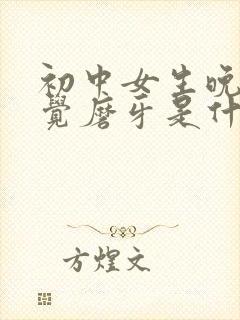 初中女生晚
覺磨牙是什
方煌文